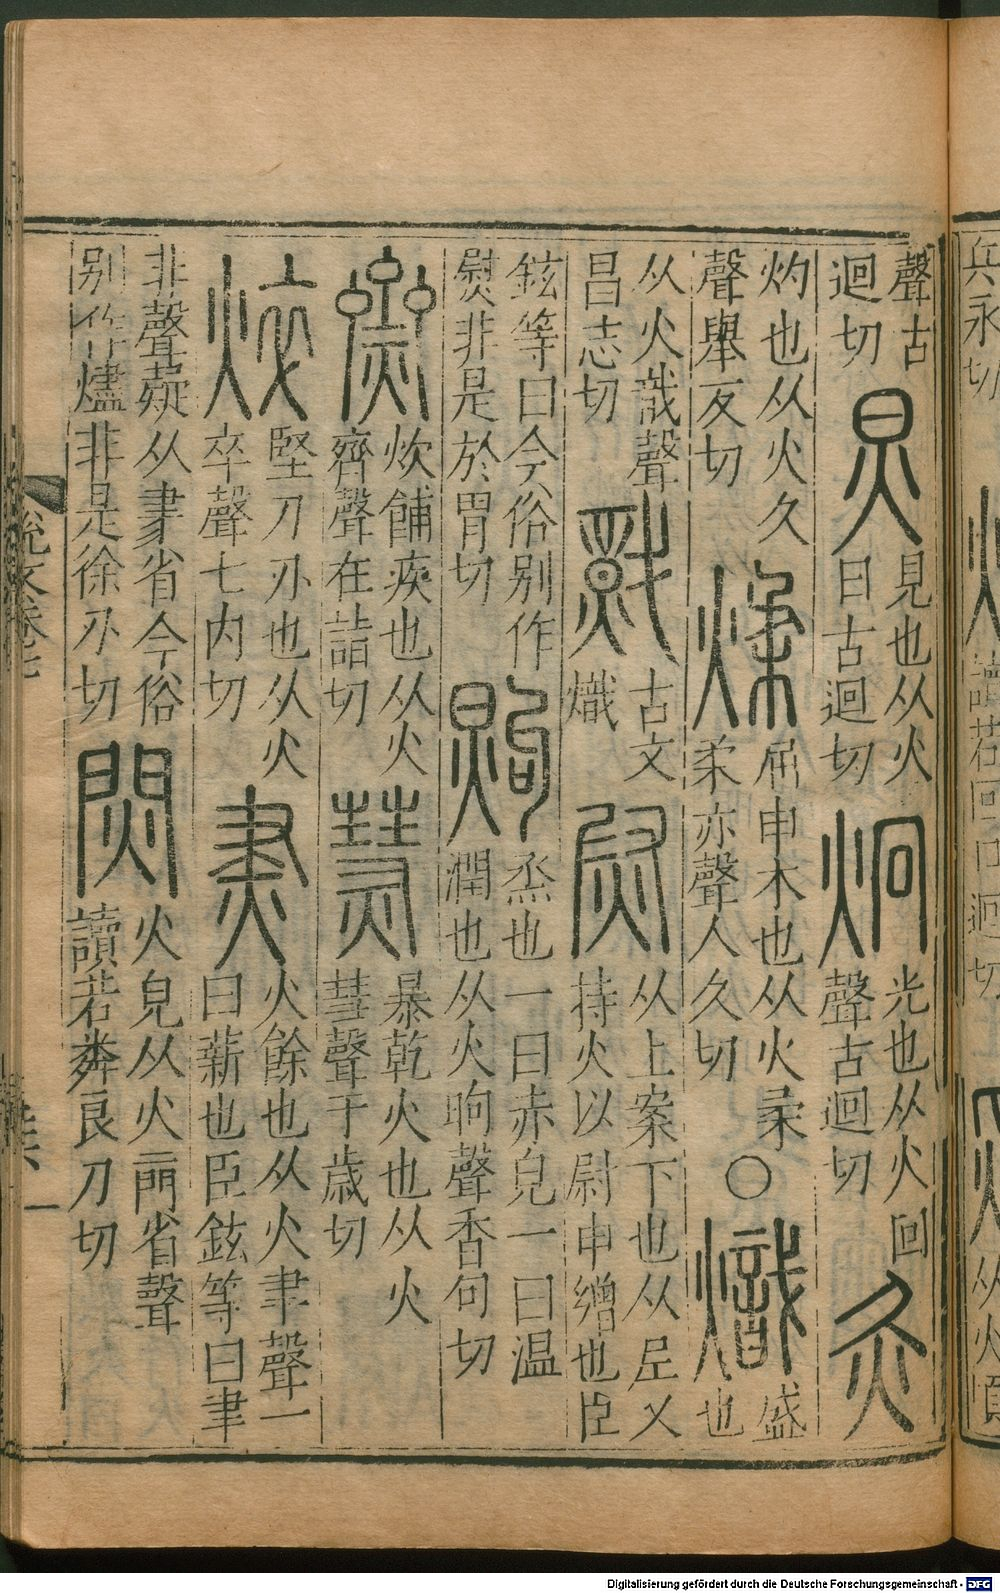 兵永切
聲古
迴切
炅
見也从火
日古迴切
炯
光也从火回
聲古迴切
灸
灼也从火久
聲舉友切
煣
屈申木也从火柔
柔亦聲人久切
○
熾
盛
也
从火戠聲
昌志切
古文
熾
尉
从上案下也从𡰥又
持火以尉申繒也臣
鉉等曰今俗别作
熨非是於胃切
煦
烝也一曰赤皃一曰温
潤也从火昫聲香句切
齌
炊餔疾也从火
齊聲在詣切
熭
暴乾火也从火
彗聲于歳切
焠
堅刀刃也从火
卒聲七内切
㶳
火餘也从火聿聲一
曰薪也臣鉉等曰聿
非聲疑从𦘔省今俗
别作燼非是徐刃切
焛
火皃从火門省聲
讀若粦良刀切